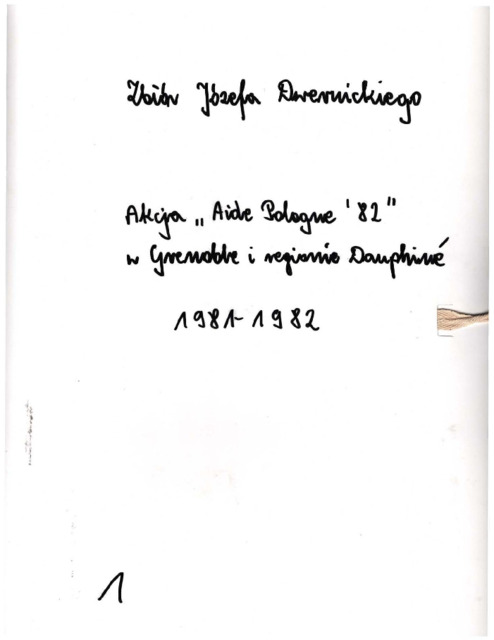 Zbiór Józefa Dwernickiego
Akcja „Aide Pologne '82"
w Grenoble i regionie Dauphiné
1981-1982
1